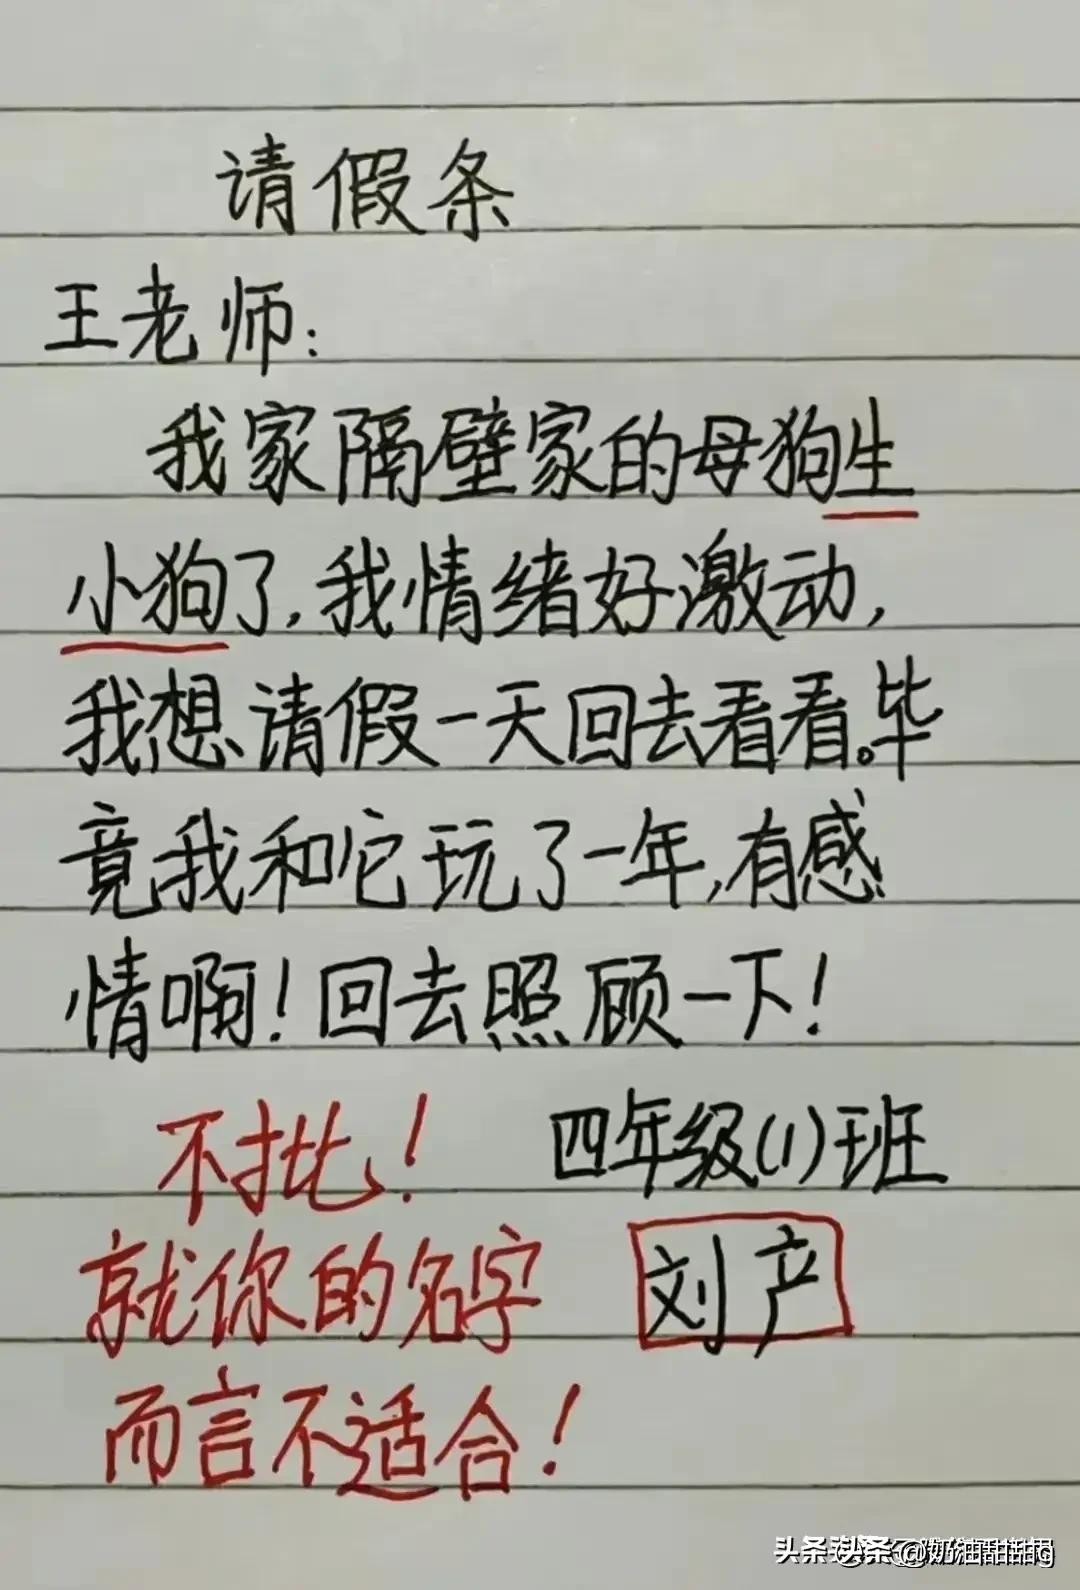 请假条
王老师:
我家隔壁家的母狗生
小狗了,我情绪好激动,
我想请假一天回去看看。毕
竟我和它玩了一年,有感
情啊!回去照顾一下!
不批! 四年级(1)班
就你的名字 刘产
而言不适合!
头条 @奶油甜甜